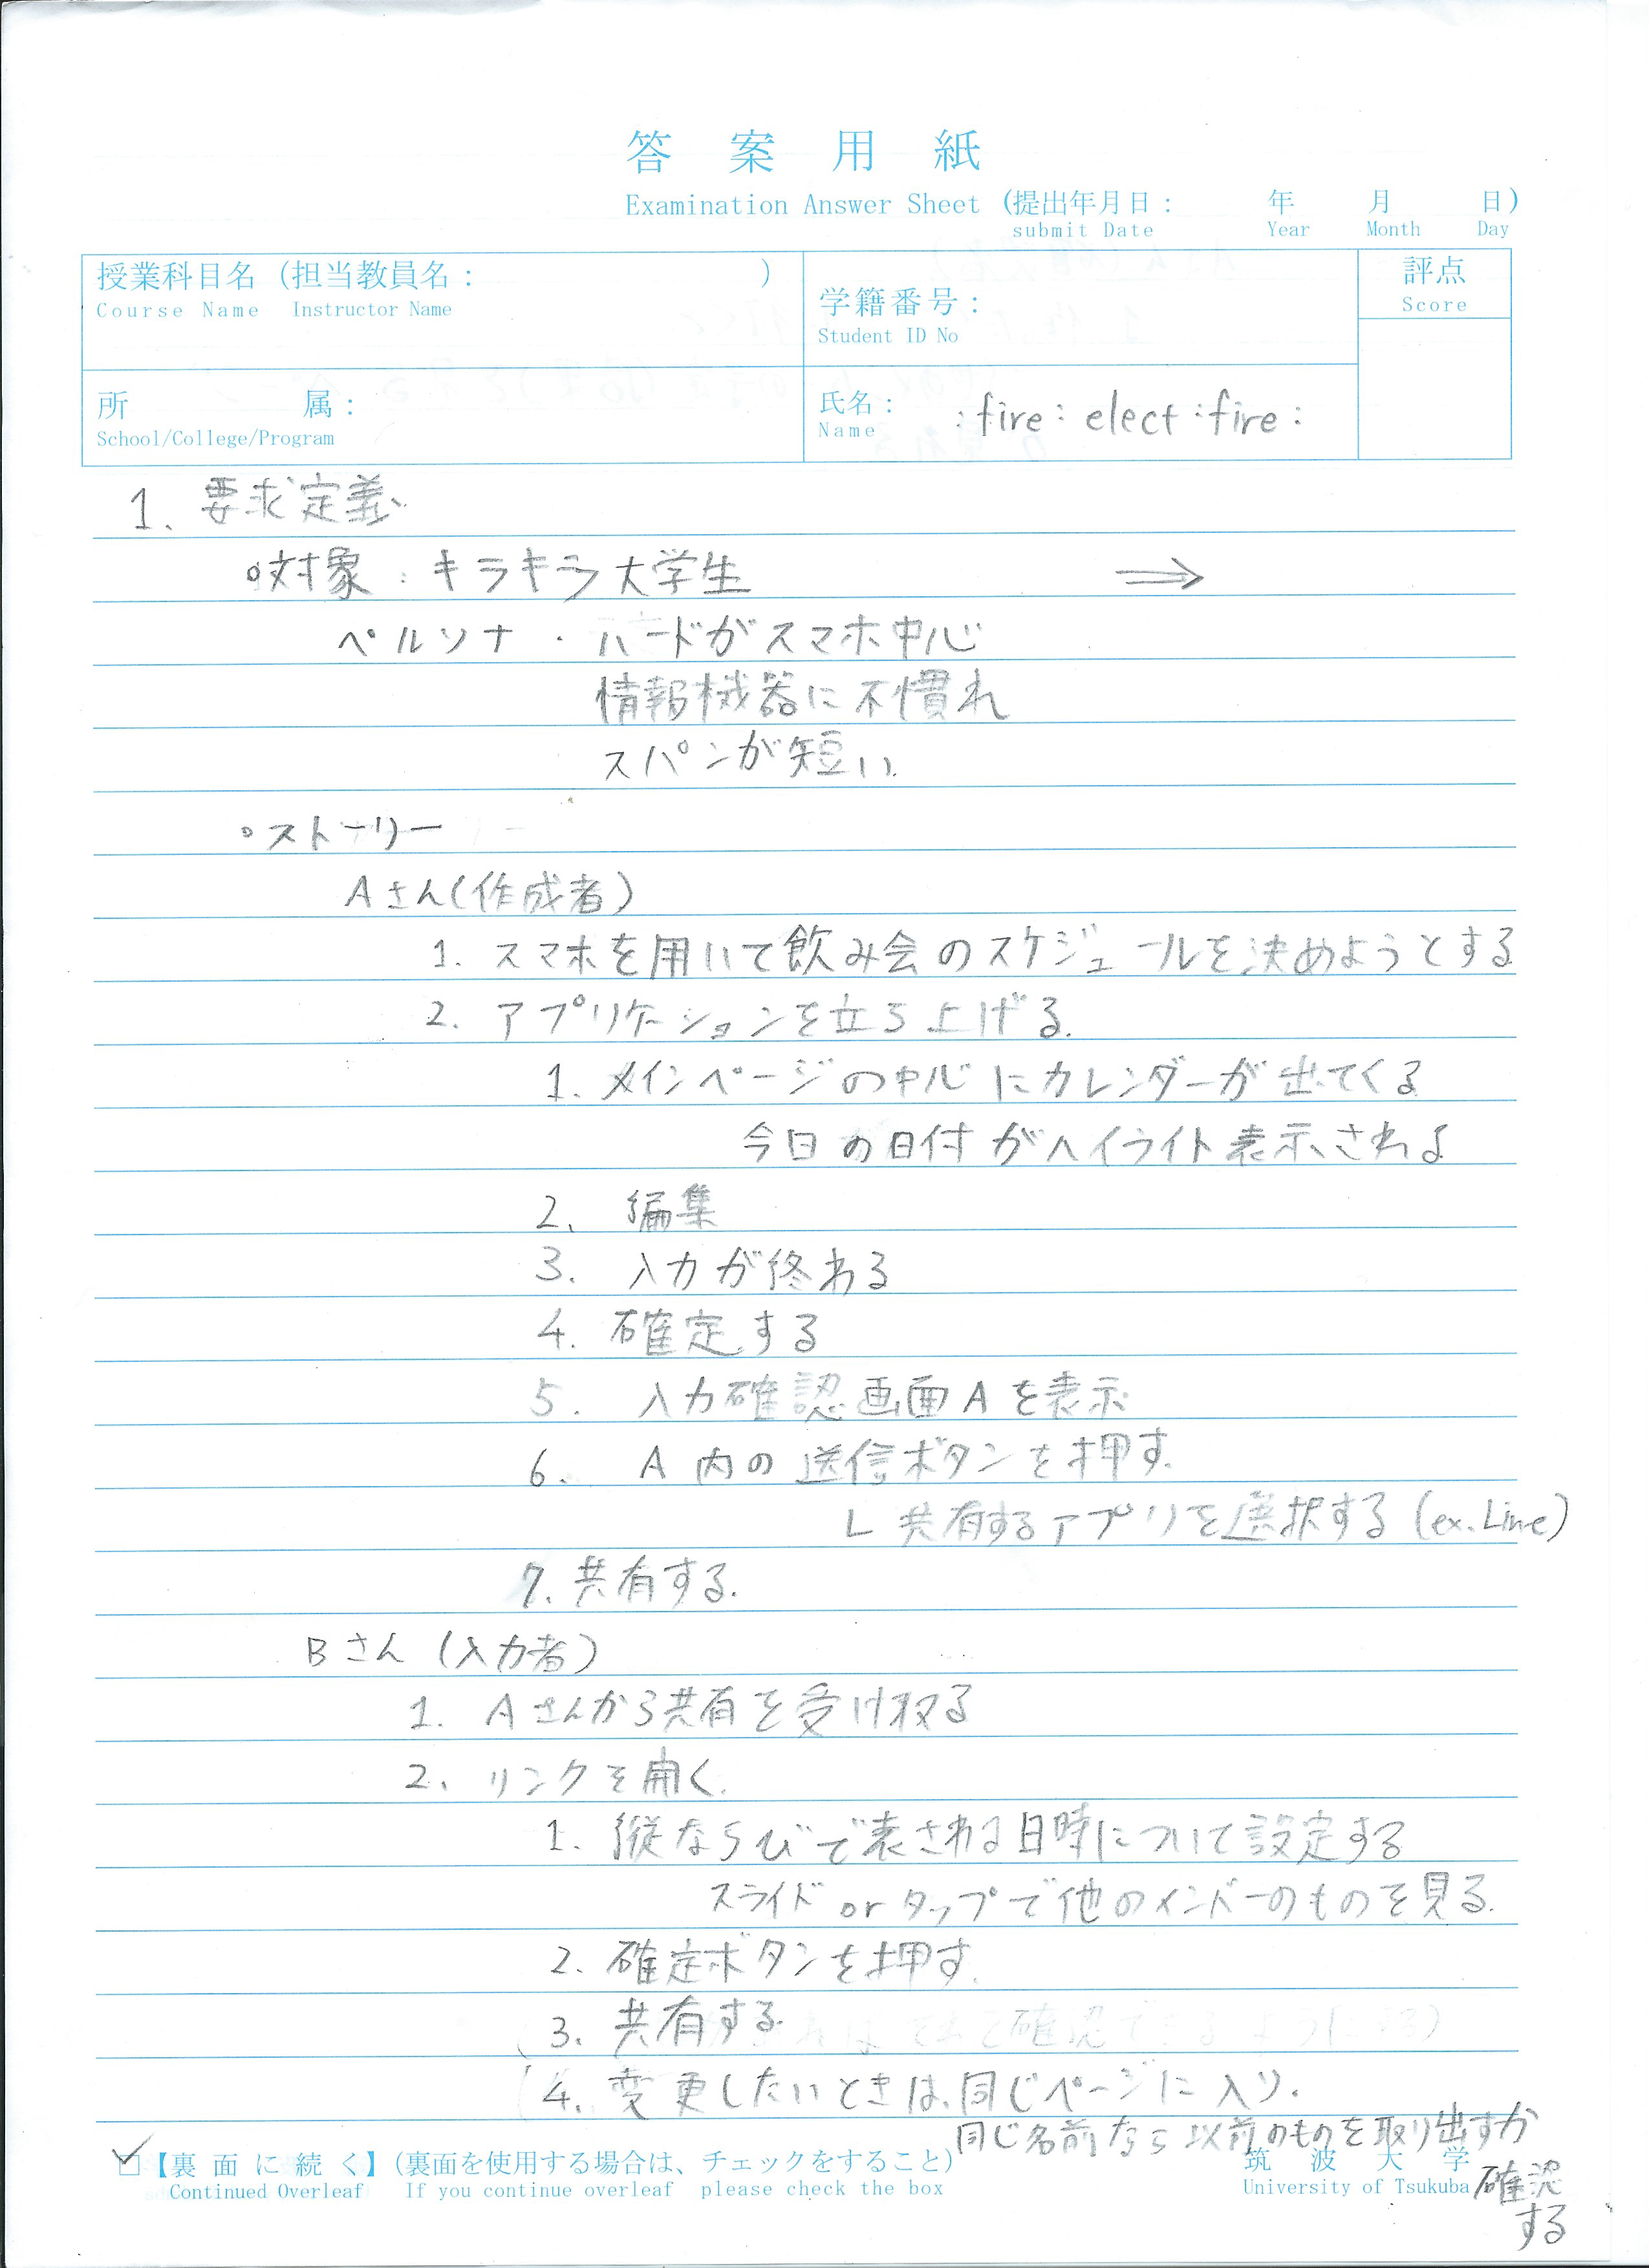 答案用紙
Examination Answer Sheet (提出年月日: 年 月 日)
submit Date Year Month Day
授業科目名 (担当教員名: )
Course Name Instructor Name
学籍番号:
Student ID No
評点
Score
所 属:
School/College/Program
氏名: :fire: elect :fire:
Name
1. 要求定義
○対象:キラキラ大学生 ⇒
ペルソナ・ハードがスマホ中心
情報機器に不慣れ
スパンが短い
○ストーリー
Aさん(作成者)
1. スマホを用いて飲み会のスケジュールを決めようとする
2. アプリケーションを立ち上げる.
1. メインページの中心にカレンダーが出てくる
今日の日付がハイライト表示される
2. 編集
3. 入力が終わる
4. 確定する
5. 入力確認画面Aを表示
6. A内の送信ボタンを押す.
L 共有するアプリを選択する (ex. Line)
7. 共有する.
Bさん (入力者)
1. Aさんから共有を受け取る
2. リンクを開く.
1. 縦ならびで表される日時について設定する
スライド or タップで他のメンバーのものを見る.
2. 確定ボタンを押す.
3. 共有する
(4. 変更したいときは、同じページに入り.
同じ名前なら以前のものを取り出すか
確認
する
【裏面に続く】(裏面を使用する場合は、チェックをすること)
Continued Overleaf If you continue overleaf please check the box
筑波大学
University of Tsukuba